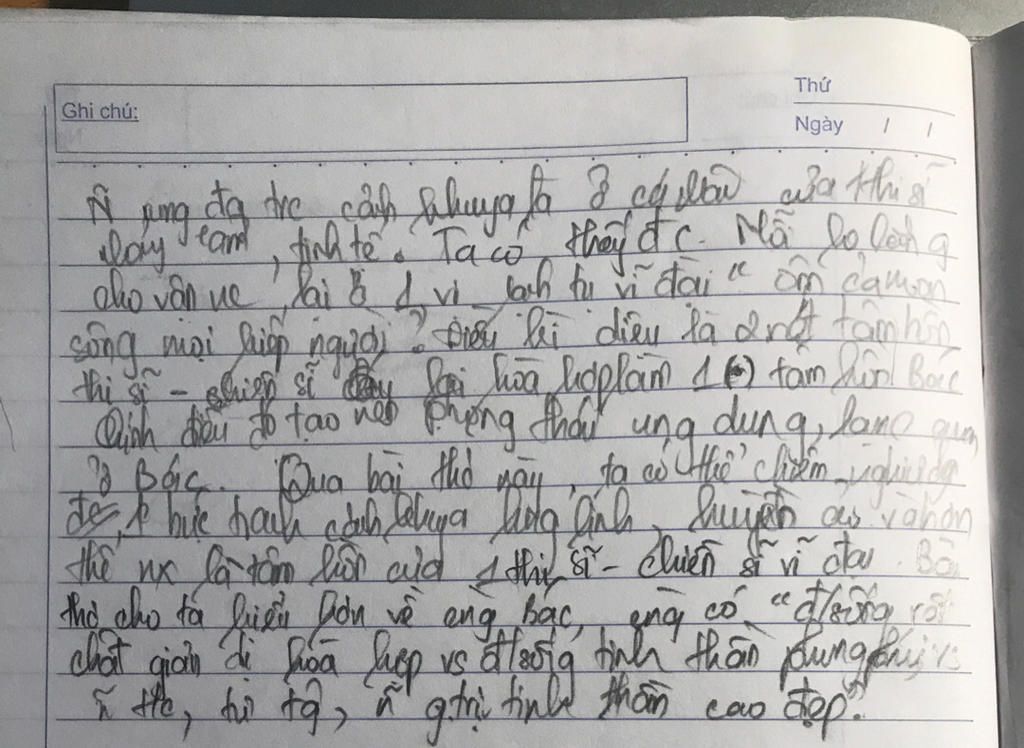 Thứ
Ghi chú:
Ngày / /
rung đg trc cảnh khuya là ở cá của thi sĩ
nhạy cảm, tinh tế. Ta có thấy đc. Nỗi lo lắng
cho vận nc lại ở 1 vị lãnh tụ vĩ đại "ôm cả non
sông mọi kiếp người". Điều kì diệu là 2 nét tâm hồn
thi sĩ - chiến sĩ lại hòa hợp làm 1 (-) tâm hồn Bác
Chính điều đó tạo nên phong thái ung dung, lạc quan
ở Bác. Qua bài thơ này, ta có thể chiêm nghiệm
đc 1 bức tranh cảnh khuya lung linh, huyền ảo và hơn
thế nx là tâm hồn của 1 thi sĩ - chiến sĩ vĩ đại. Bài
thơ cho ta hiểu hơn về ông Bác, có "đ/sống
chất giản dị hòa hợp vs đ/sống tinh thần phong phú, vs
ñ tc, tư tg, ñ g.trị tinh thần cao đẹp".